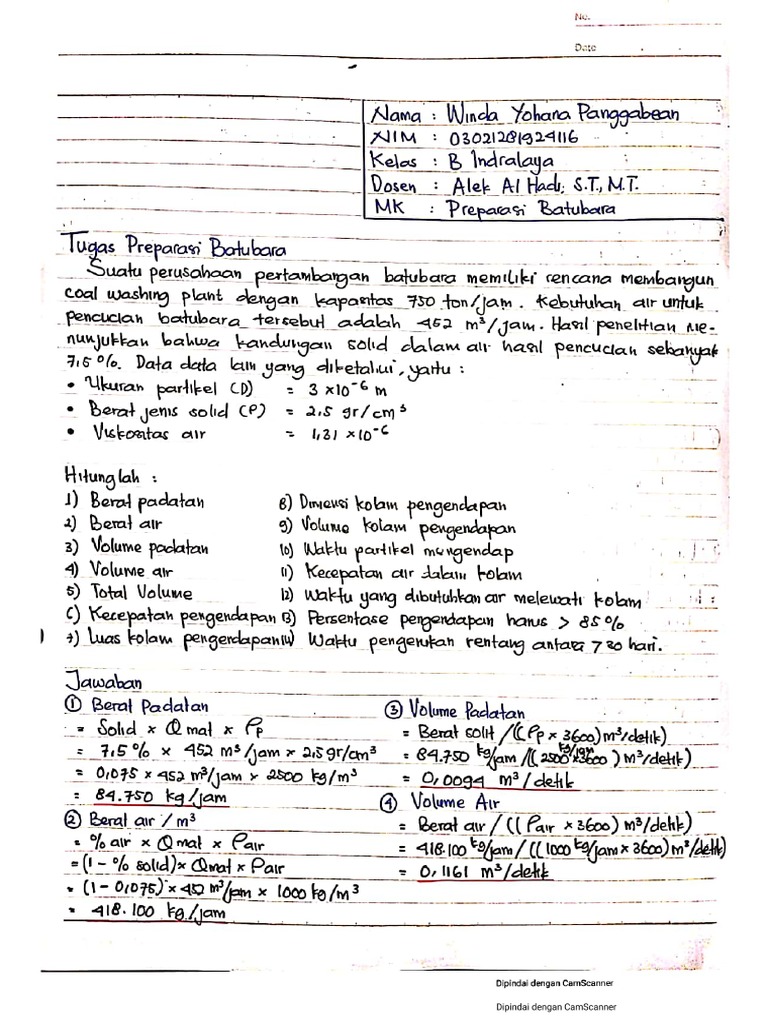 No.
Date
Nama : Winda Yohana Panggabean
NIM : 03021281924116
Kelas : B Indralaya
Dosen : Alek Al Hadi, S.T., M.T.
MK : Preparasi Batubara
Tugas Preparasi Batubara
Suatu perusahaan pertambangan batubara memiliki rencana membangun
coal washing plant dengan kapasitas 750 ton/jam. Kebutuhan air untuk
pencucian batubara tersebut adalah 452 m³/jam. Hasil penelitian me-
nunjukkan bahwa kandungan solid dalam air hasil pencucian sebanyak
7,5%. Data data lain yang diketahui, yaitu :
• Ukuran partikel (D) = 3 x10⁻⁶ m
• Berat jenis solid (P) = 2,5 gr/cm³
• Viskositas air = 1,31 x10⁻⁶
Hitunglah :
1) Berat padatan
2) Berat air
3) Volume padatan
4) Volume air
5) Total Volume
6) Kecepatan pengendapan
7) Luas kolam pengendapan
8) Dimensi kolam pengendapan
9) Volume kolam pengendapan
10) Waktu partikel mengendap
11) Kecepatan air dalam kolam
12) Waktu yang dibutuhkan air melewati kolam
13) Persentase pengendapan harus > 85%
14) Waktu pengerukan rentang antara 730 hari.
Jawaban
① Berat Padatan
= Solid x Qmat x ρp
= 7,5% x 452 m³/jam x 2,5 gr/cm³
= 0,075 x 452 m³/jam x 2500 kg/m³
= 84.750 kg/jam
② Berat air / m³
= % air x Qmat x ρair
= (1 - % solid) x Qmat x ρair
= (1 - 0,075) x 452 m³/jam x 1000 kg/m³
= 418.100 kg/jam
③ Volume Padatan
= Berat solit / ((ρp x 3600) m³/detik)
= 84.750 kg/jam / ((2500 kg/jam x 3600) m³/detik)
= 0,0094 m³/detik
④ Volume Air
= Berat air / ((ρair x 3600) m³/detik)
= 418.100 kg/jam / ((1000 kg/jam x 3600) m³/detik)
= 0,1161 m³/detik
Dipindai dengan CamScanner
Dipindai dengan CamScanner